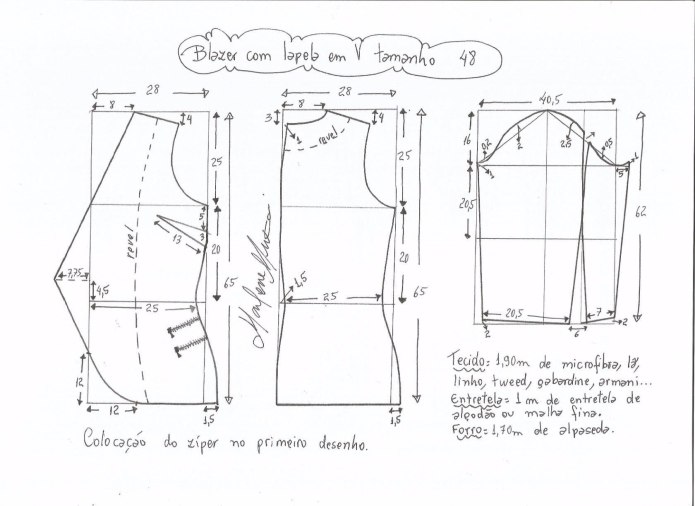 Blazer com lapela em V tamanho 48
28
8
4
25
5
3
13
20
65
revel
7,75
4,5
25
12
12
1,5
28
8
3
4
1
revel
25
20
65
1,5
25
1,5
40,5
16
0,2
2
2,5
0,5
1
1
5
20,5
62
20,5
7
2
6
2
Colocação do zíper no primeiro desenho.
Tecido: 1,90m de microfibra, lã,
linho, tweed, gabardine, armani...
Entretela = 1 m de entretela de
algodão ou malha fina.
Forro: 1,70m de alpaseda.